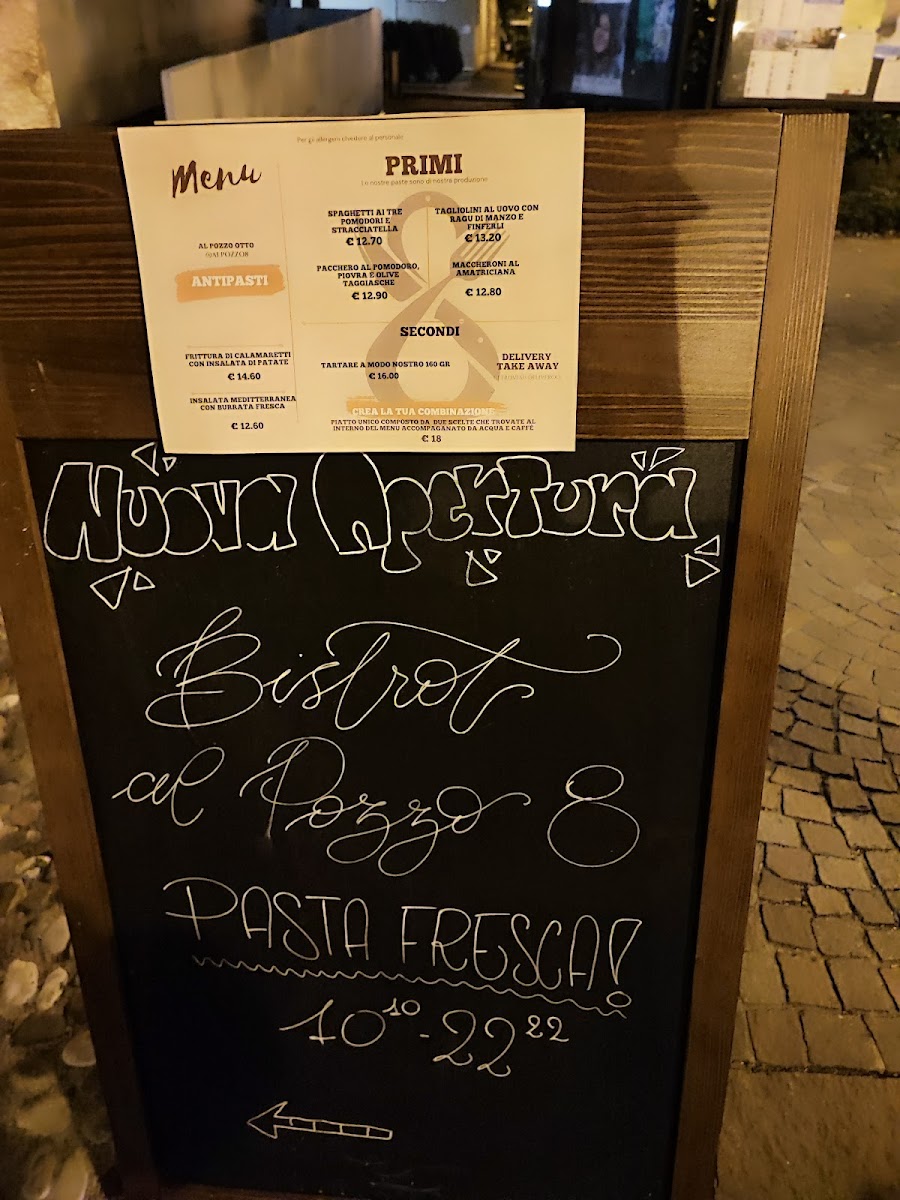 Per gli allergeni chiedere al personale
Menu
AL POZZO OTTO
ANTIPASTI
FRITTURA DI CALAMARETTI
CON INSALATA DI PATATE
€ 14.60
INSALATA MEDITTERRANEA
CON BURRATA FRESCA
€ 12.60
PRIMI
Le nostre paste sono di nostra produzione
SPAGHETTI AI TRE
POMODORI E
STRACCIATELLA
€ 12.70
TAGLIOLINI AL UOVO CON
RAGU DI MANZO E
FINFERLI
€ 13.20
PACCHERO AL POMODORO,
PIOVRA E OLIVE
TAGGIASCHE
€ 12.90
MACCHERONI AL
AMATRICIANA
€ 12.80
SECONDI
TARTARE A MODO NOSTRO 160 GR
€ 16.00
DELIVERY
TAKE AWAY
CREA LA TUA COMBINAZIONE
PIATTO UNICO COMPOSTO DA DUE SCELTE CHE TROVATE AL
INTERNO DEL MENU ACCOMPAGANATO DA ACQUA E CAFFÈ
€ 18
NUOVA APERTURA
Bistrot
al Pozzo 8
PASTA FRESCA!
10¹⁰-22²²